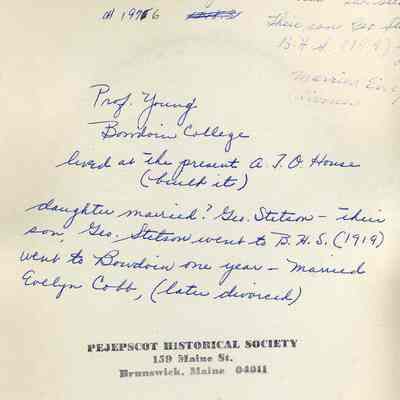 1976
Their son Geo
B.H.S. (1919)
Married Ev
Prof. Young
Bowdoin College
lived at the present A.T.O. House
(built it)
daughter married? Geo. Stetson - their
son, Geo. Stetson went to B.H.S. (1919)
went to Bowdoin one year - married
Evelyn Cobb, (later divorced)
PEJEPSCOT HISTORICAL SOCIETY
159 Maine St.
Brunswick, Maine 04011